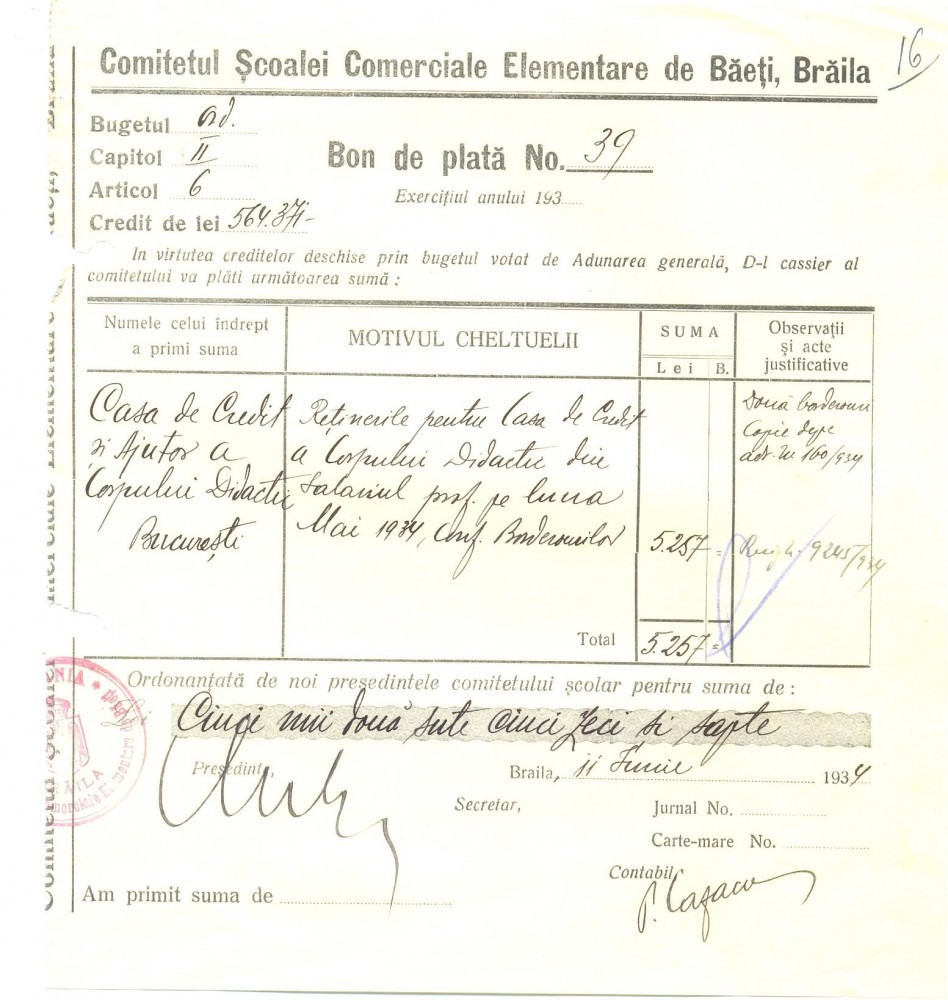 16
Comitetul Școalei Comerciale Elementare de Băeți, Brăila
Bugetul ord.
Capitol II
Bon de plată No. 39
Articol 6
Exercițiul anului 193
Credit de lei 564.371-
In virtutea creditelor deschise prin bugetul votat de Adunarea generală, D-l cassier al
comitetului va plăti următoarea sumă :
Numele celui îndrept
a primi suma
MOTIVUL CHELTUELII
SUMA
Lei B.
Observații
și acte
justificative
Casa de Credit
și Ajutor a
Corpului Didactic
București
Reținerile pentru Casa de Credit
a Corpului Didactic din
salariul prof. pe luna
Mai 1934, conf. Borderourilor
5.257 =
Două borderouri
Copie dupe
adr. 160/934
9245/934
Total 5.257 =
Ordonanțată de noi președintele comitetului școlar pentru suma de :
Cinci mii două sute cinci zeci si sapte
Președinte,
Braila, 11 Iunie 1934
Secretar,
Jurnal No.
Carte-mare No.
Contabil,
Am primit suma de